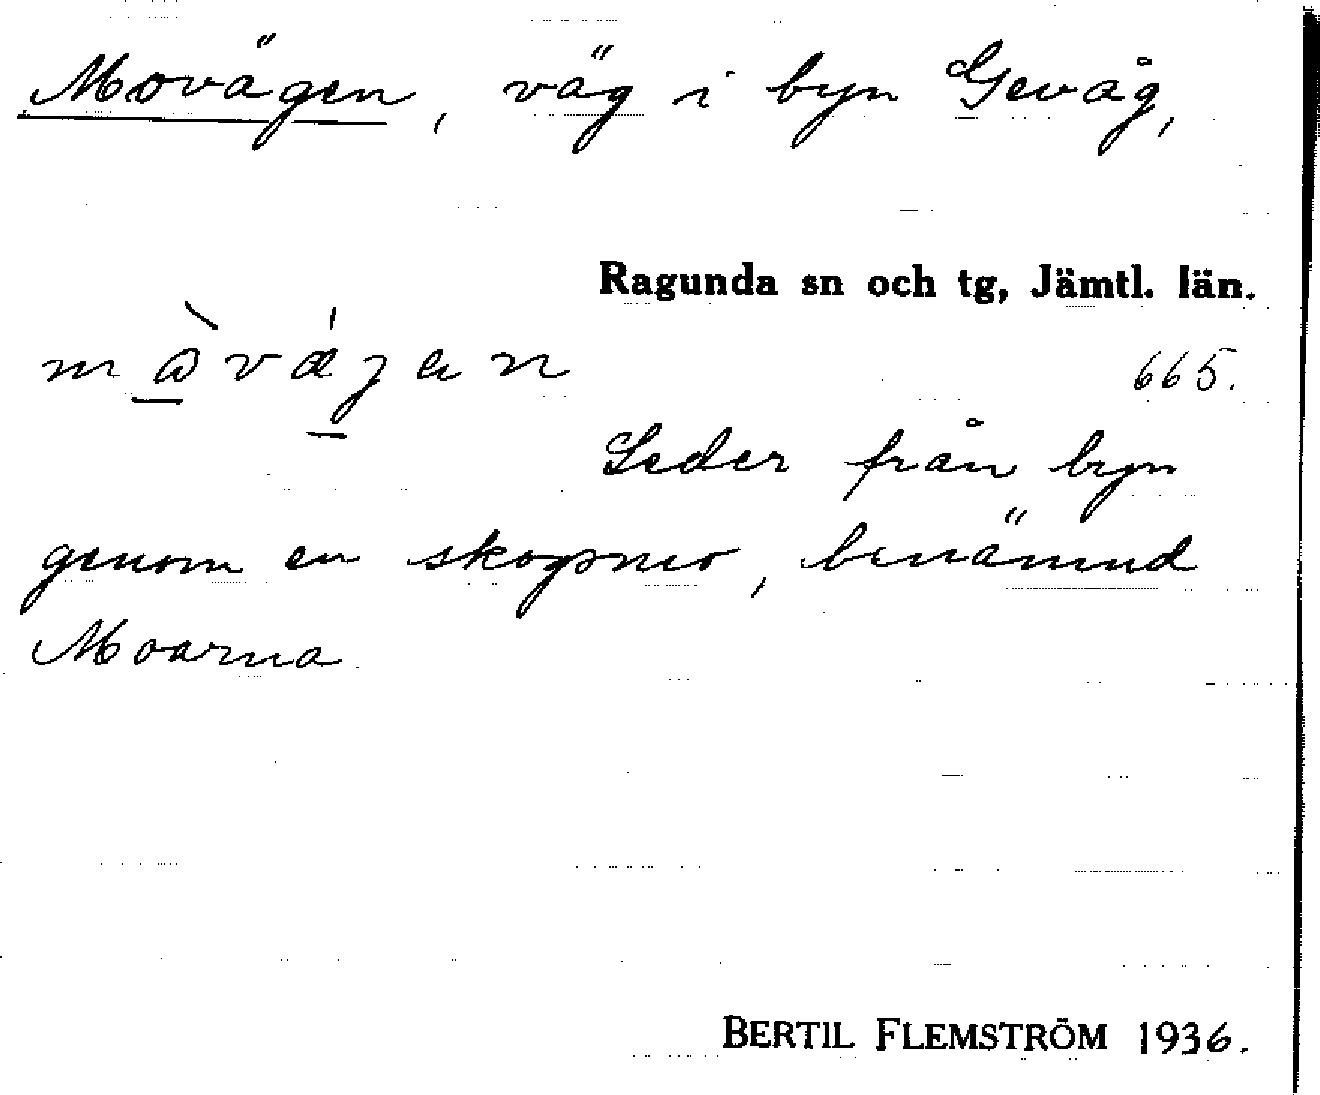 Movägen, väg i byn Gevåg,
Ragunda sn och tg, Jämtl. län.
665.
Leder från byn
genom en skogsmo, benämnd
Moarna
BERTIL FLEMSTRÖM 1936.